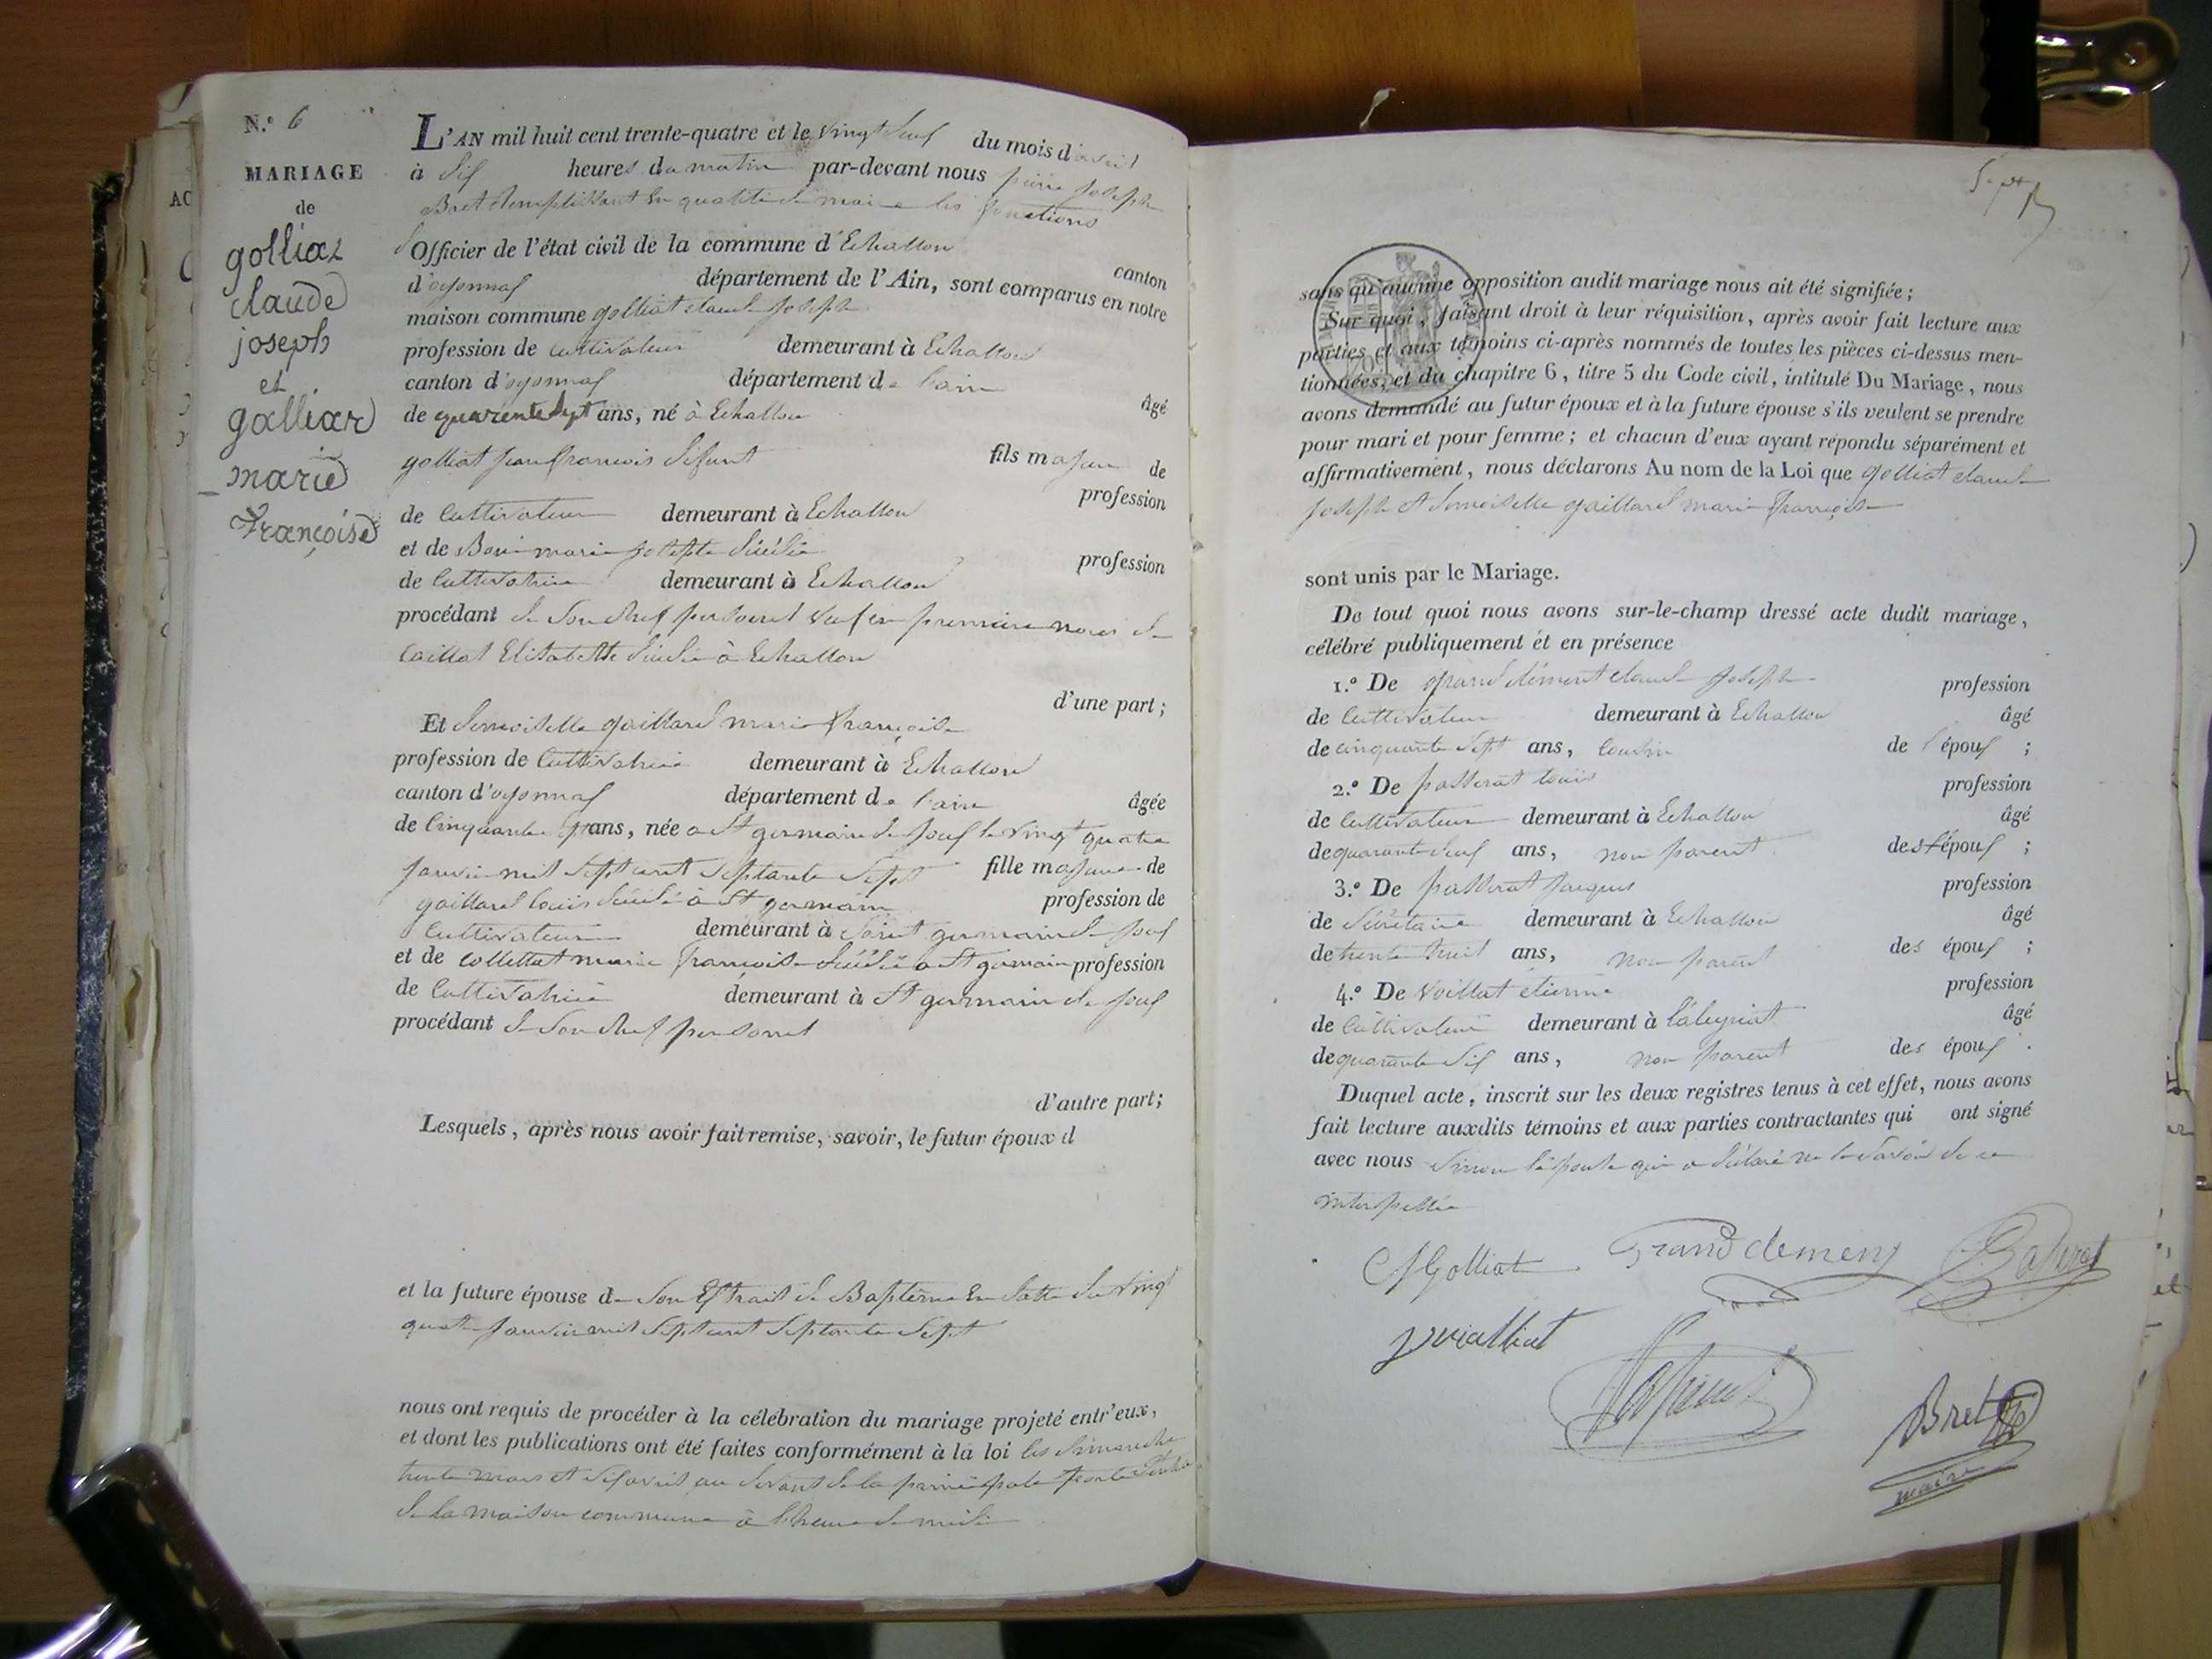 N.º 6
MARIAGE
de
golliaz
claude
joseph
et
galliard
marie
françoise
L'AN mil huit cent trente-quatre et le vingt neuf du mois d'avril
à six heures du matin par-devant nous pierre joseph
Bret Remplissant en qualité de maire les fonctions
d'Officier de l'état civil de la commune d'Echallon
canton
d'oyonnax département de l'Ain, sont comparus en notre
maison commune golliat claude joseph
profession de cultivateur demeurant à Echallon
canton d'oyonnax département de l'ain
âgé
de quarente sept ans, né à Echallon
fils majeur de
golliat jean françois défunt
profession
de Cultivateur demeurant à Echallon
et de Bon marie josephte décédée
profession
de Cultivatrice demeurant à Echallon
procédant de son chef personel veuf en premiere noces de
Caillat Elisabette décédée à Echallon
d'une part;
Et demoiselle gaillard marie françoise
profession de Cultivatrice demeurant à Echallon
canton d'oyonnax département de l'ain âgée
de Cinquante sept ans, née a St germain de joux le vingt quatre
janvier mil sept cent septante sept fille majeure de
gaillard louis décédé à St germain profession de
Cultivateur demeurant à saint germain de joux
et de collettat marie françoise décédée a St germain profession
de Cultivatrice demeurant à St germain de joux
procédant de son chef personnel
d'autre part;
Lesquels, après nous avoir fait remise, savoir, le futur époux d
et la future épouse de son Extrait de Baptême En datte du vingt
quatre janvier mil sept cent septante sept
nous ont requis de procéder à la célébration du mariage projeté entr'eux,
et dont les publications ont été faites conformément à la loi les dimanche
trente mars et six avril au devant de la principale porte
de la maison commune à l'heure de midi
sans qu'aucune opposition audit mariage nous ait été signifiée;
Sur quoi, faisant droit à leur réquisition, après avoir fait lecture aux
parties et aux témoins ci-après nommés de toutes les pièces ci-dessus men-
tionnées, et du chapitre 6, titre 5 du Code civil, intitulé Du Mariage, nous
avons demandé au futur époux et à la future épouse s'ils veulent se prendre
pour mari et pour femme; et chacun d'eux ayant répondu séparément et
affirmativement, nous déclarons Au nom de la Loi que golliat claude
joseph et demoiselle gaillard marie françoise
sont unis par le Mariage.
De tout quoi nous avons sur-le-champ dressé acte dudit mariage,
célébré publiquement et en présence
1.º De grand clément claude joseph profession
de Cultivateur demeurant à Echallon âgé
de cinquante sept ans, cousin de l'époux ;
2.º De passerat louis profession
de Cultivateur demeurant à Echallon âgé
de quarante neuf ans, non parent des époux ;
3.º De passerat jacques profession
de Sécrétaire demeurant à Echallon âgé
de trente huit ans, non parent des époux ;
4.º De Voillat étienne profession
de Cultivateur demeurant à l'aleyriat âgé
de quarante six ans, non parent des époux .
Duquel acte, inscrit sur les deux registres tenus à cet effet, nous avons
fait lecture auxdits témoins et aux parties contractantes qui ont signé
avec nous sinon l'épouse qui a déclaré ne le savoir de ce
interpellée
C J Golliat Grand clemeny Paserat
Bret
maire